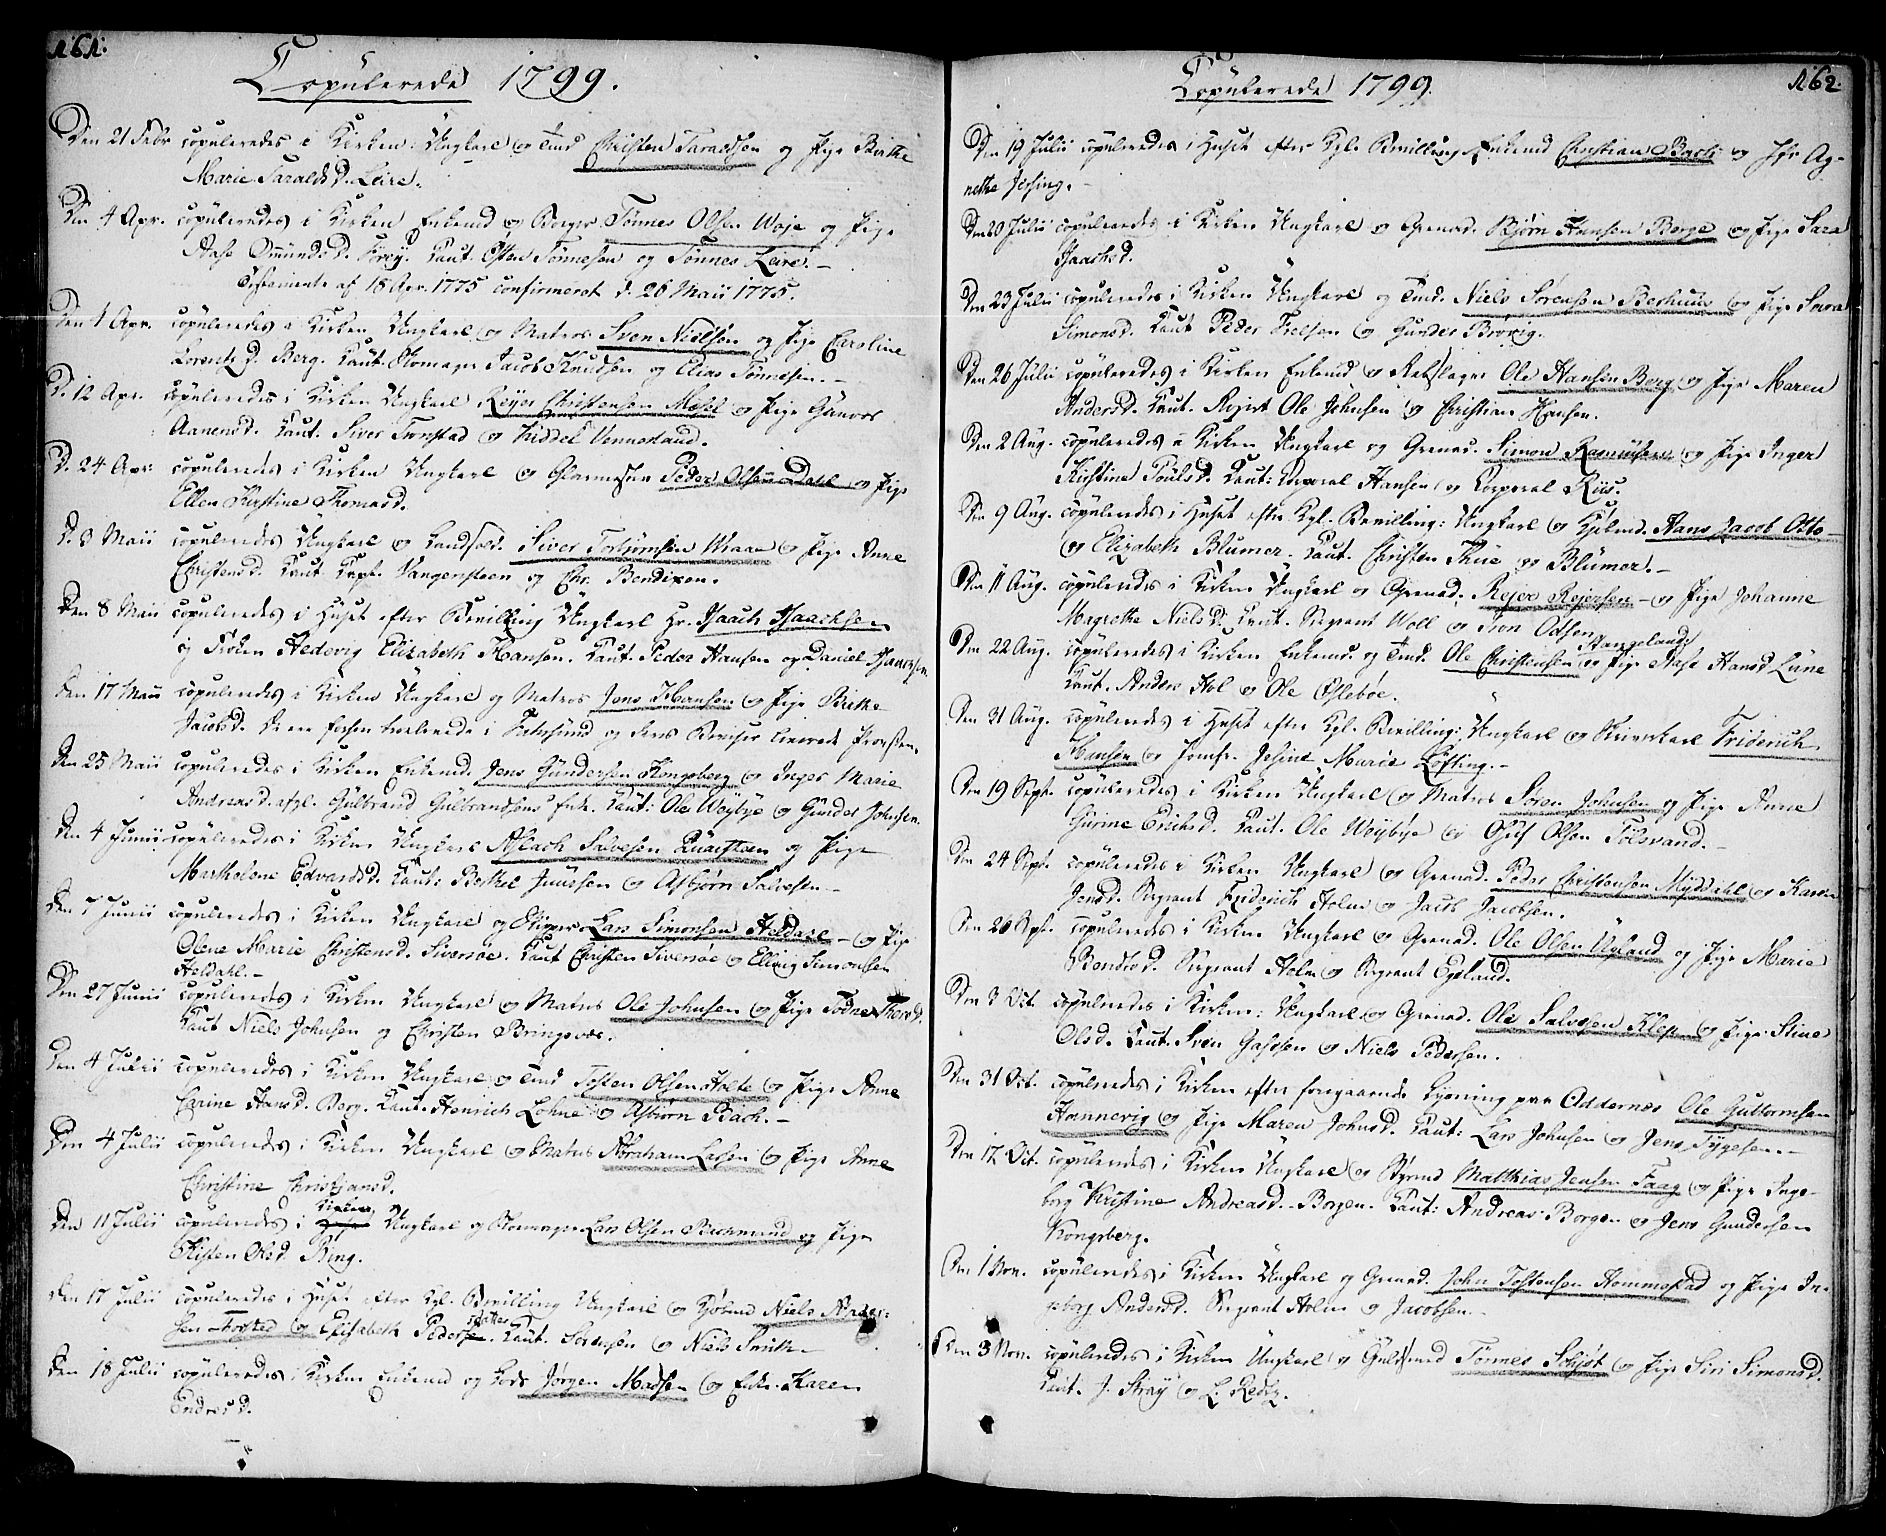 161.
Copulerede 1799.
Den 21 Febr copuleredes i Kirken Ungkarl og Tmd Christen Taraldsen og Pige Birthe
Marie Taralds D. Leire.
Den 4 Apr. copuleredes i Kirken Enkemd og Borger Tønnes Olsen Woje og Pige
Aase Omunds D. Caut. Osten Tønnesen og Tønnes Leire.
Testamente af 18 Apr. 1775 confirmeret d. 26 Maii 1775.
Den 4 Apr. copuleredes i Kirken Ungkarl og Matros Sven Nielsen og Pige Caroline
Lorentz D. Berg. Caut. Skomager Jacob Knudsen og Elias Tønnesen.
D. 12 Apr. copuleredes i Kirken Ungkarl Reyer Christensen Mosel og Pige Gunvor
Aanensd. Caut. Siver Tronstad og Kiddel Vennesland.
D. 24 Apr. copuleredes i Kirken Ungkarl og Glarmester Peder Olsen Dahl og Pige
Ellen Kirstine Thomasd.
D. 3 Maii copuleredes Ungkarl og Landsold. Siver Torkjømsen Wraae og Pige Anne
Christensd. Caut. Capt. Vangensteen og Chr. Bendixen.
Den 8 Maii copuleredes i Huset efter Bevilling Ungkarl Hr. Isaach Isaachsen
og Frøken Hedevig Elizabeth Hansen. Caut. Peder Hansen og Daniel Isaachsen.
Den 17 Maii copuleredes i Kirken Ungkarl og Matros Jens Hansen og Pige Birthe
Jacobsd. De ere forhen trolovede i og deres Beviser leverede Provsten.
Den 25 Maii copuleredes i Kirken Enkemd. Jens Gundersen Kongsberg og Inger Marie
Andreas D. afgl. Gulbrand Gulbrandsens Enke. Caut: Ole Woybye og Gunder Johnsen.
Den 4 Junii copuleredes i Kirken Ungkarl Aslach Salvesen Quaisteen og Pige
Marthelone Edvardsd. Caut: Berthel Juulsen og Asbjørn Salvesen.
Den 7 Junii copuleredes i Kirken Ungkarl og Skipper Lars Simonsen Heldahl og Pige
Olene Marie Christensd. Siversøe. Caut Christen Siversøe og Elling Simonsen
Heldahl.
Den 27 Junii copuleredes i Kirken Ungkarl og Matros Ole Johnsen og Pige Todne Thorsd.
Caut Niels Johnsen og Christen Bringsvor.
Den 4 Julii copuleredes i Kirken Ungkarl og Tmd Tosten Olsen Holte og Pige Anne
Carine Hansd. Berg. Caut. Henrich Lohne og Asbiørn Bach.
Den 4 Julii copuleredes i Kirken Ungkarl og Matros Abraham Larsen og Pige Anne
Christine Christjansd.
Kirken
Den 11 Julii copuleredes i Huset Ungkarl og Skomager Lars Olsen og Pige
Kisten Olsd. Ring.
Den 17 Julii copuleredes i Huset efter Kgl. Bevilling Ungkarl og Kjøbmd Niels Ander-
datter
sen Forsted og Elisabeth Peder Caut. Sørensen og Niels Smith.
Den 18 Julii copuleredes i Kirken Enkemd og Lods Jørgen Madsen og Enke Karen
Endresd.
162.
Copulerede 1799.
Den 19 Julii copuleredes i Huset efter Kgl. Bevilling Enkemd Christian Bach og Jfr Ag-
nethe Jersing.
Den 20 Julii copuleredes i Kirken Ungkarl og Grenad. Bjørn Hansen Borge og Pige Sara
Isaachsd.
Den 23 Julii copuleredes i Kirken Ungkarl og Tmd. Niels Sørensen og Pige Sara
Simonsd. Caut Peder Trelsen og Gunder Brøvig.
Den 26 Julii copuleredes i Kirken Enkemd og Rebslager Ole Hansen Berg og Pige Maren
Andersd. Caut. Ole Johnsen og Christian Hansen.
Den 2 Aug. copuleredes i Kirken Ungkarl og Grenad. Simon Rasmusen og Pige Inger
Kirstine Poulsd. Caut: Corporal Hansen og Corporal Riis.
Den 9 Aug. copuleredes i Huset efter Kgl. Bevilling: Ungkarl og Kjøbmd. Hans Jacob Otto
og Elizabeth Blumer. Caut. Christen Thue og Blumer.
Den 11 Aug. copuleredes i Kirken Ungkarl og Grenad. Rejer Rejersen og Pige Johanne
Magrethe Nielsd. Caut. Sergeant Woll og Tron Odsen
Stangeland
Den 22 Aug. copuleredes i Kirken Enkemd. og Tmd. Ole Christensen og Pige Aase Hansd Lune
Caut. Anders Hol og Ole Oslebøe.
Den 31 Aug. copuleredes i Huset efter Kgl. Bevilling: Ungkarl og Friderich
Hansen og Jomfr. Jesine Marie Lofting.
Den 19 Sept. copuleredes i Kirken Ungkarl og Matros Søren Johnsen og Pige Anne
Gurine Erichsd. Caut. Ole Woybye og Oluf Olsen Tolsvand.
Den 24 Sept. copuleredes i Kirken Ungkarl og Grenad. Peder Christensen Myddahl og Karen
Jensd. Sergeant Friderich Holm og Jacob Jacobsen.
Den 26 Sept. copuleredes i Kirken Ungkarl og Grenad. Ole Olsen Ugland og Pige Marie
Bendtsd. Sergeant Holm og Sergeant Egeland.
Den 3 Oct. copuleredes i Kirken: Ungkarl og Grenad. Ole Salvesen Klep og Pige Stine
Olsd. Caut. Sven Gassen og Niels Pedersen.
Den 31 Oct. copuleredes i Kirken efter foregaaende Lysning paa Oddernes Ole Guttormsen
Hannevig og Pige Maren Johnsd. Caut: Lars Johnsen og Jens Tygesen.
Den 17 Oct. copuleredes i Kirken Ungkarl og Styrmd Matthias Jensen Faag og Pige Inge-
borg Kristine Andreasd. Borgen. Caut: Andreas Borgen og Jens Gundersen
Kongsberg.
Den 1 Nov. copuleredes i Kirken Ungkarl og Grenad. John Tostensen Hommestad og Pige In-
geborg Andersd. Sergeant Holm og Jacobsen.
Den 3 Nov. copuleredes i Kirken Ungkarl og Guldsmed Tønnes Schjøt og Pige Siri Simonsd.
Caut. J. Stray og L. Redtz.